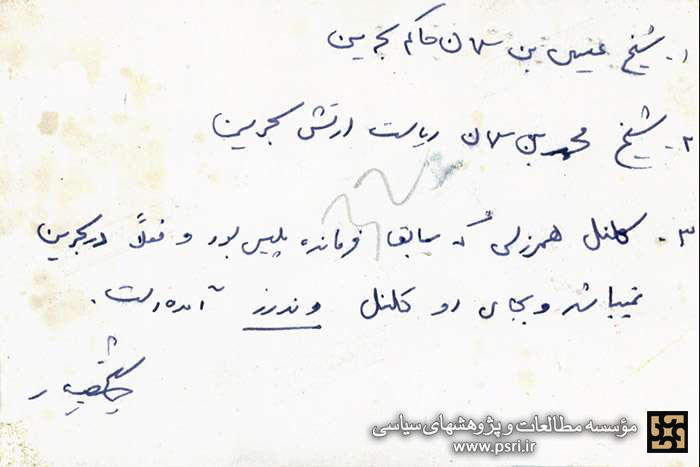 ۱- شیخ عیسی بن سلمان حاکم بحرین
۲- شیخ محمد بن سلمان ریاست ارتش بحرین
۳- کلنل همرزلی که سابقا فرمانده پلیس بود و فعلاً در بحرین
نمیباشد و بجای او کلنل وندرز آمده است.
مؤسسه مطالعات و پژوهشهای سیاسی
www.psri.ir